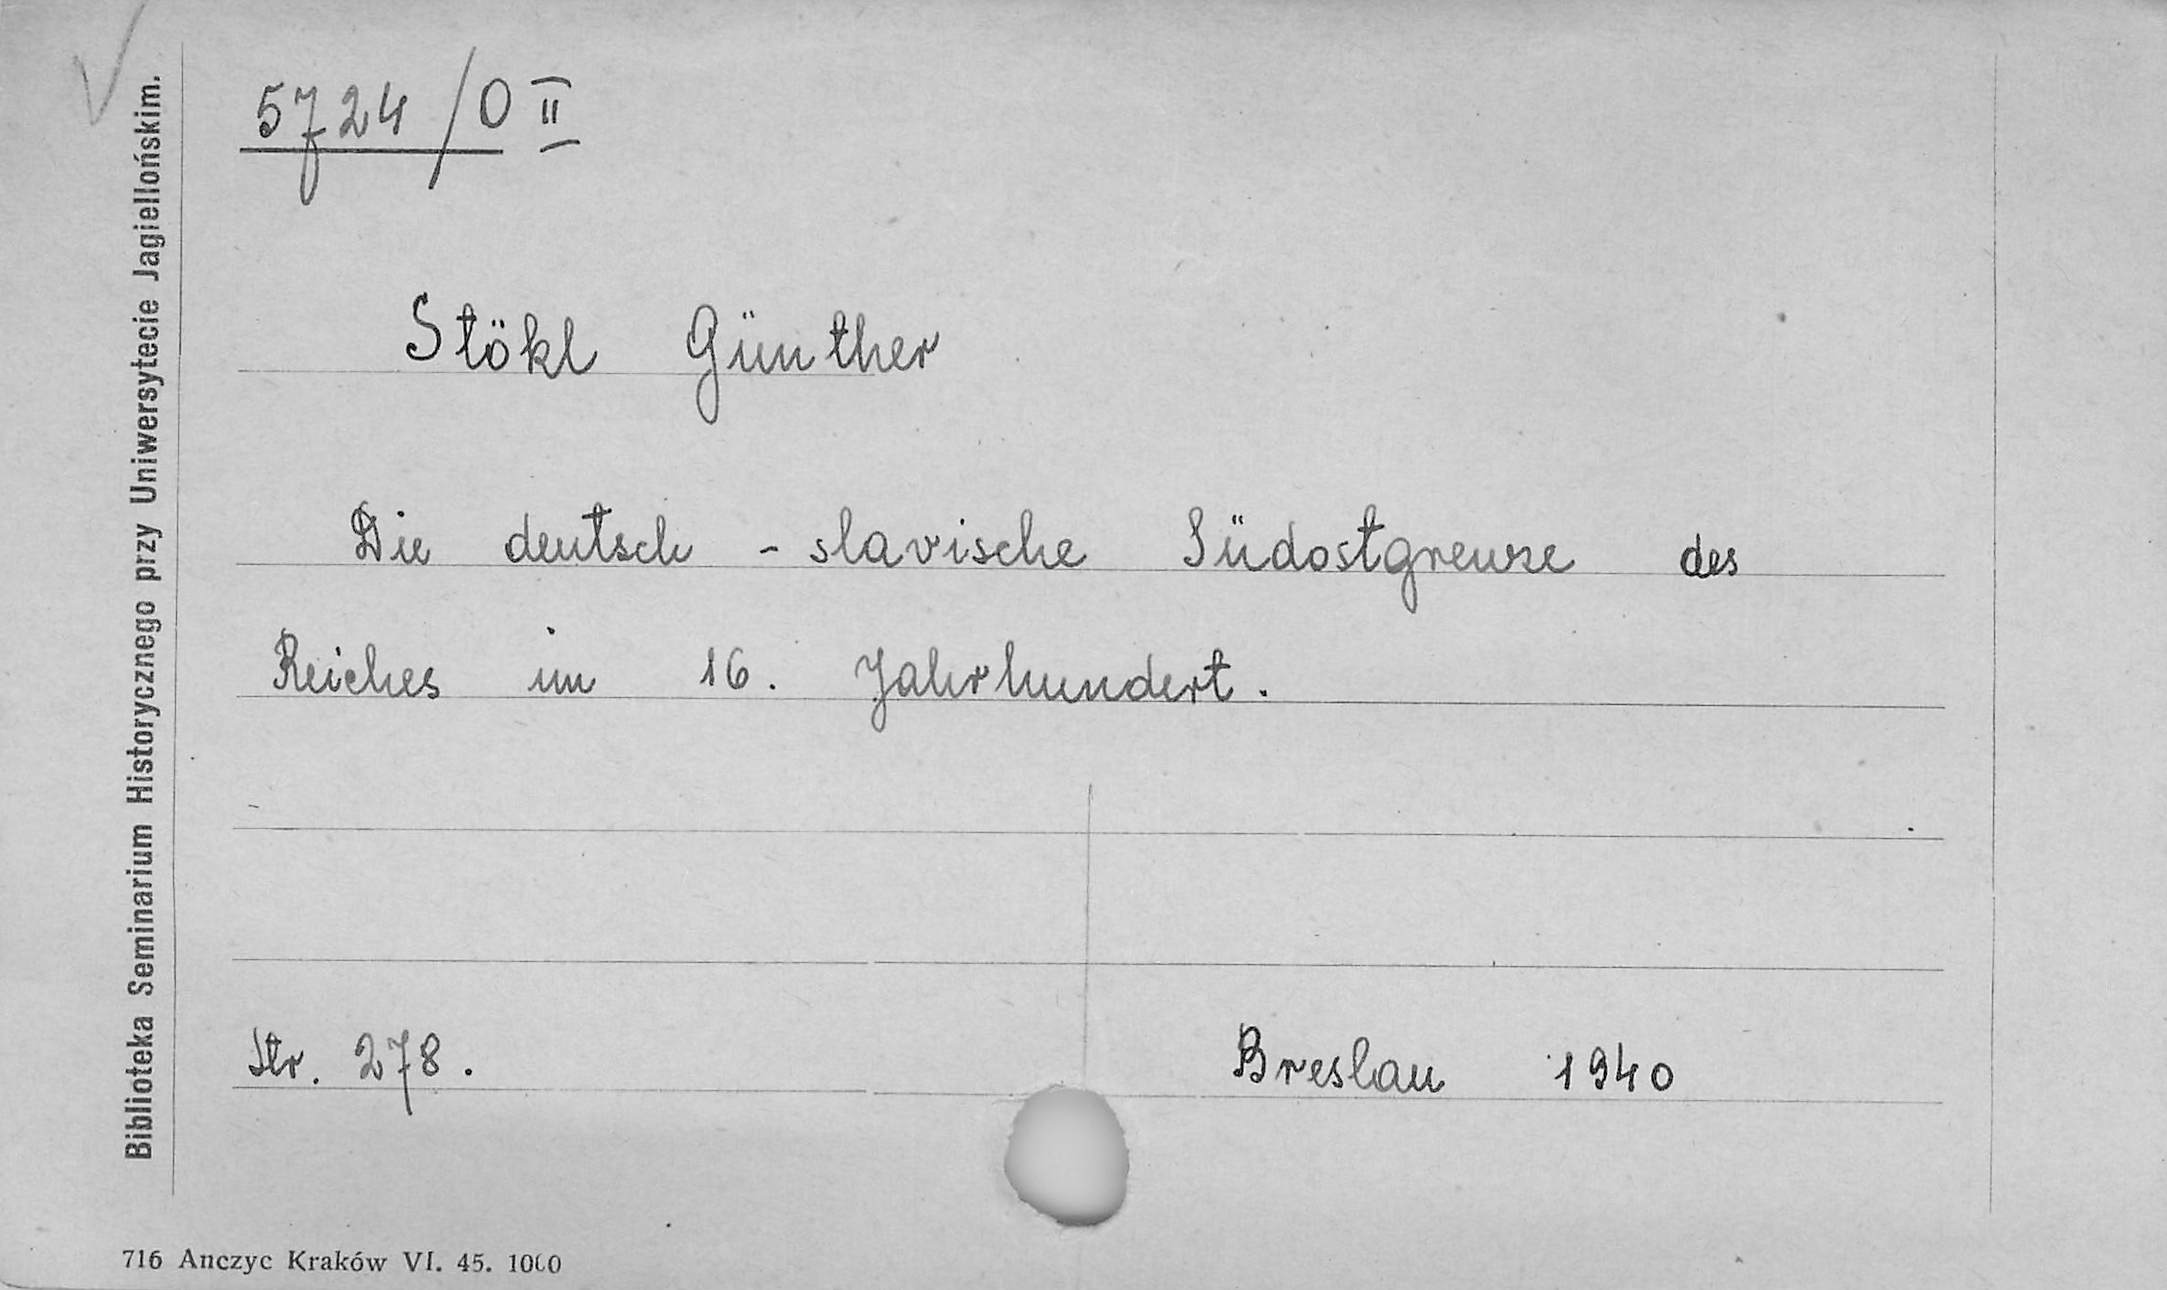 5724/O II
Stökl Günther
Die deutsch - slavische Südostgrenze des
Reiches im 16. Jahrhundert.
Str. 278.
Breslau 1940
Biblioteka Seminarium Historycznego przy Uniwersytecie Jagiellońskim.
716 Anczyc Kraków VI. 45. 1000